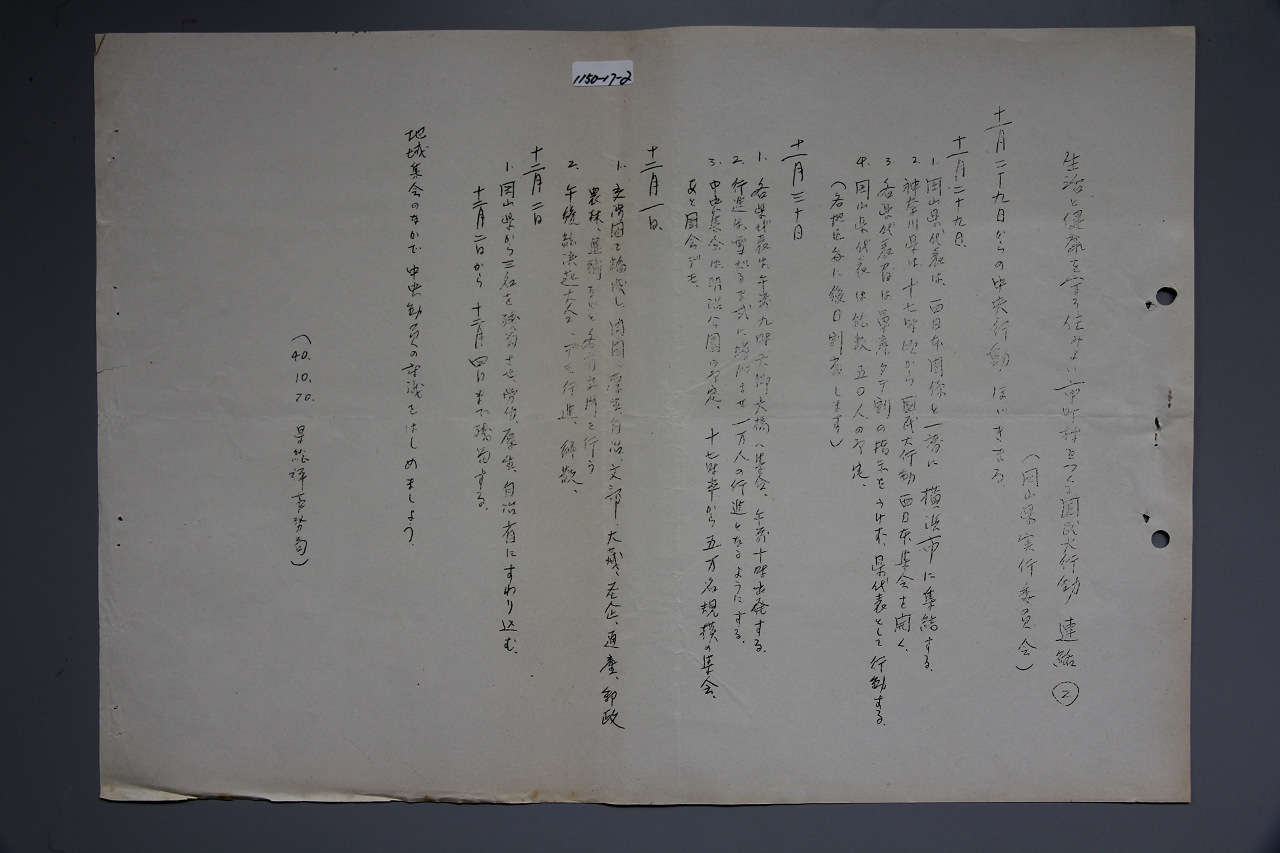 1150-17-2
生活と健康を守り住みよい市町村をつくる国民大行動 連絡 ②
(岡山県実行委員会)
十一月二十九日からの中央行動
十一月二十九日
1. 岡山県代表は、西日本関係と一諸に横浜市に集結する。
2. 神奈川県は、十七時頃から国民大行動西日本集会を開く、
3. 各県代表団は単産タテ割の指示をうけず、県代表として行動する。
4. 岡山県代表は総数五〇人の予定、
(各地区毎に後日割当します)
十一月三十日
1. 各県代表は午前九時六郷大橋へ集合、午前十時出発する。
2. 行進は 一万人の行進となるようにする。
3. 中央集会は、明治公園の予定、十七時半から五万名規模の集会、
あと国会デモ、
十二月一日、
1. 厚生、自治、文部、大蔵、 通産、郵政
農林、 など各省交渉を行う
2. 午後総決起大会、デモ行進、解散、
十二月二日
1. 岡山県から三名を残留させ、労働、厚生、自治省にすわり込む、
十二月二日から十二月四日まで残留する。
地域集会のなかで中央動員の討議をはじめましよう。
(40.10.20. 県総評事務局)